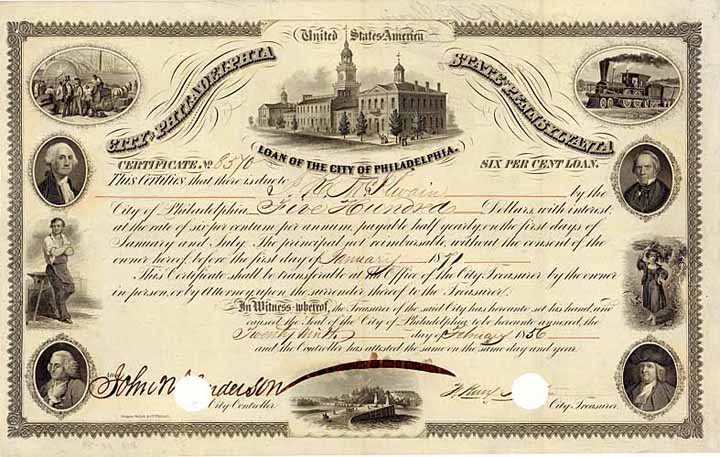 United States America
CITY of PHILADELPHIA
STATE of PENNSYLVANIA
LOAN OF THE CITY OF PHILADELPHIA.
CERTIFICATE No. 6510
SIX PER CENT LOAN.
This Certifies that there is due to by the
City of Philadelphia Five Hundred Dollars, with interest,
at the rate of six per centum per annum, payable half yearly on the first days of
January and July. The principal not reimbursable without the consent of the
owner hereof before the first day of January 1871
This Certificate shall be transferable at the Office of the City Treasurer by the owner
in person, or by Attorney upon the surrender thereof to the Treasurer.
In Witness whereof, the Treasurer of the said City has hereunto set his hand, and
caused the Seal of the City of Philadelphia, to be hereunto annexed, the
Twenty ninth day of February 1856
and the Controller has attested the same on the same day and year.
John N. Henderson
City Controller.
City Treasurer.